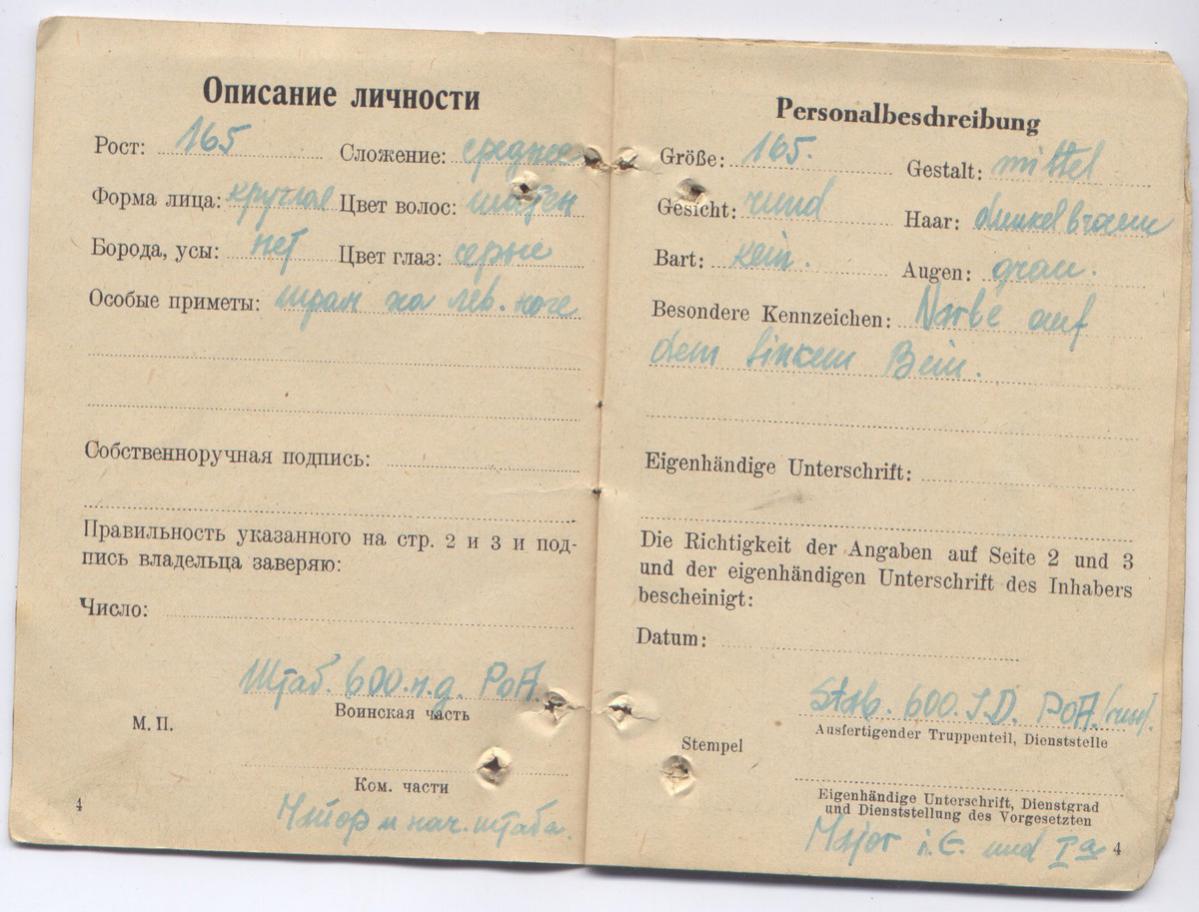 Описание личности
Рост: 165 Сложение: среднее
Форма лица: круглое Цвет волос: шатен
Борода, усы: нет Цвет глаз: серые
Особые приметы: шрам на лев. ноге
Собственноручная подпись:
Правильность указанного на стр. 2 и 3 и под-
пись владельца заверяю:
Число:
Штаб. 600.п.д. РоА.
Воинская часть
М. П.
Ком. части
и нач. штаба.
4
Personalbeschreibung
Größe: 165. Gestalt: mittel
Gesicht: rund Haar: dunkelbraun
Bart: kein. Augen: grau.
Besondere Kennzeichen: Narbe auf
dem linken Bein.
Eigenhändige Unterschrift:
Die Richtigkeit der Angaben auf Seite 2 und 3
und der eigenhändigen Unterschrift des Inhabers
bescheinigt:
Datum:
Stab. 600. I.D. РоА./russ.
Ausfertigender Truppenteil, Dienststelle
Stempel
Eigenhändige Unterschrift, Dienstgrad
und Dienststellung des Vorgesetzten
Major i.G. und Ia
4